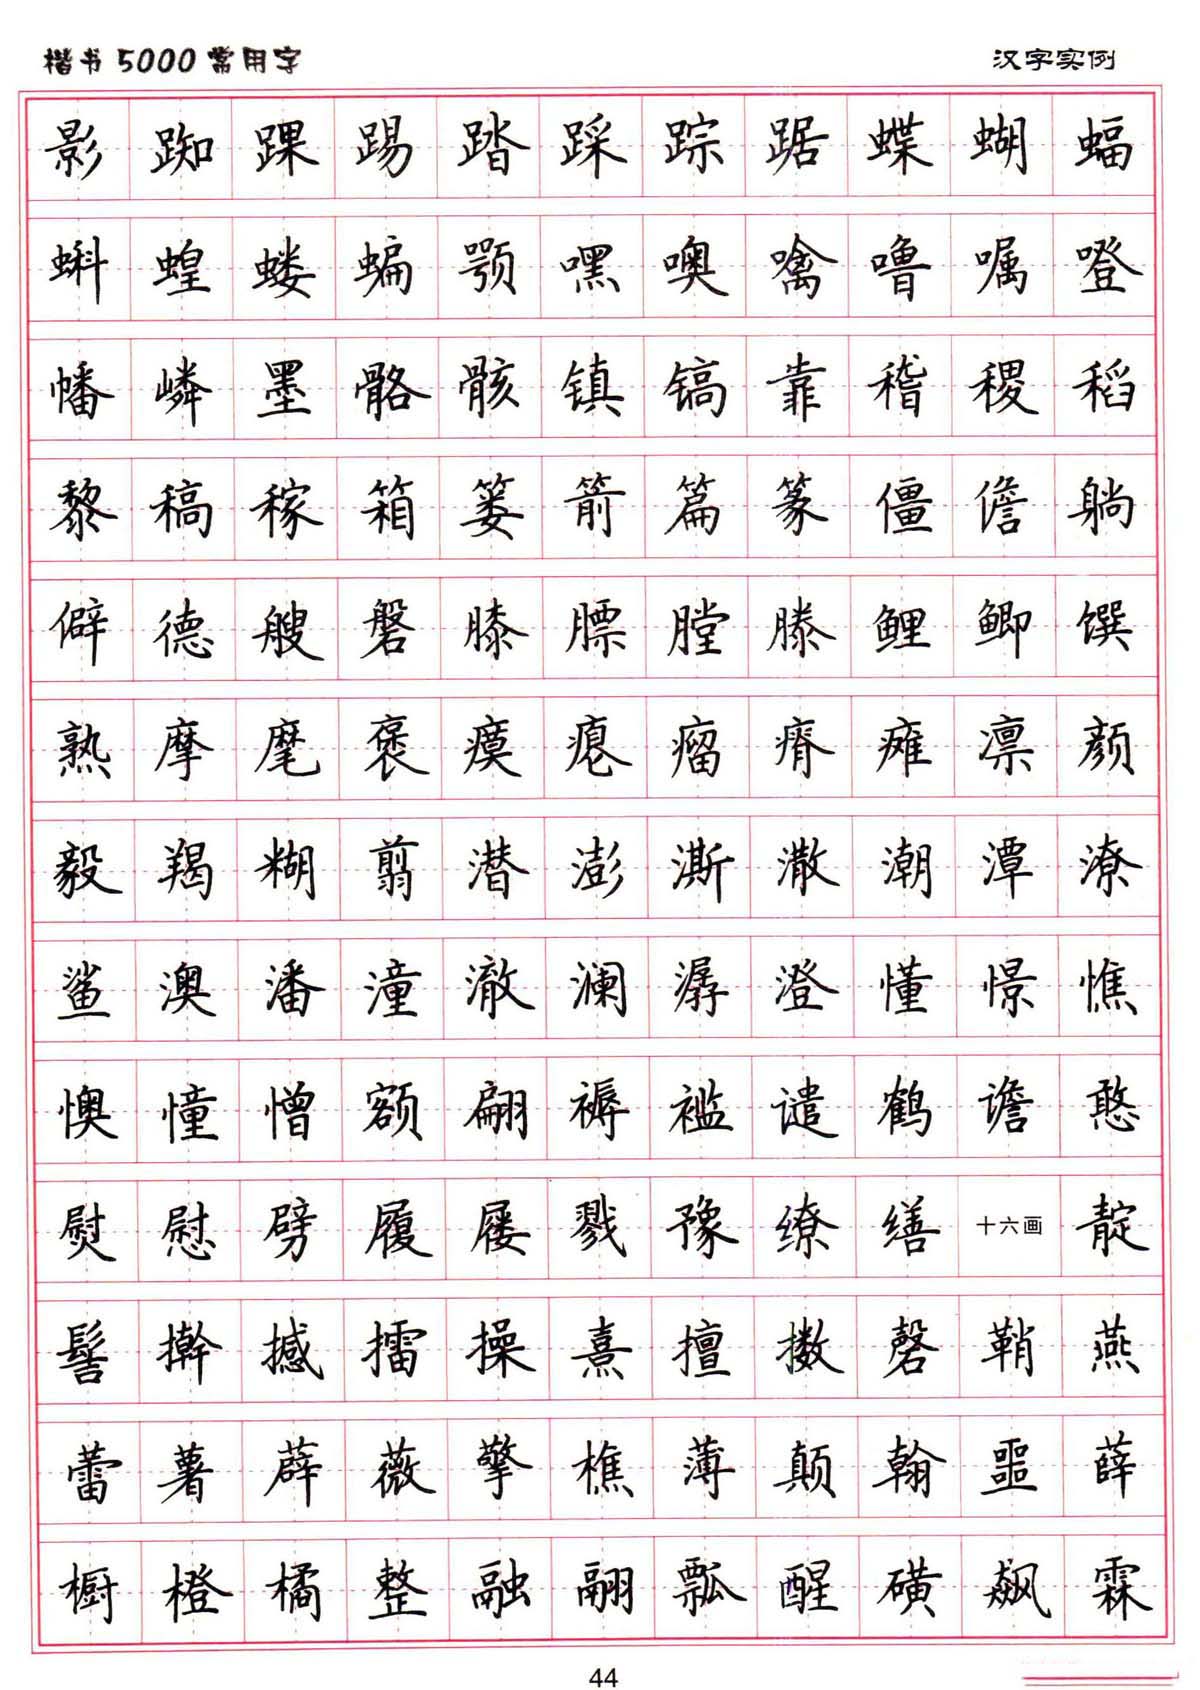 楷书5000常用字 汉字实例
影踟踝踢踏踩踪踞蝶蝴蝠
蝌蝗蝼蝙颚嘿噢噙噜嘱噔
幡嶙墨骼骸镇镐靠稽稷稻
黎稿稼箱篓箭篇篆僵儋躺
僻德艘磐膝膘膛滕鲤鲫馔
熟摩麾褒瘼瘪瘤瘠瘫凛颜
毅羯糊翦潜澎澌潵潮潭潦
鲨澳潘潼澈澜潺澄懂憬憔
懊憧憎额翩褥褴谴鹤谵憨
熨慰劈履屡戮豫缭缮十六画靛
髻擀撼擂操熹擅擞磬鞘燕
蕾薯薜薇擎樵薄颠翰噩薛
橱橙橘整融翮瓢醒磺飙霖
44